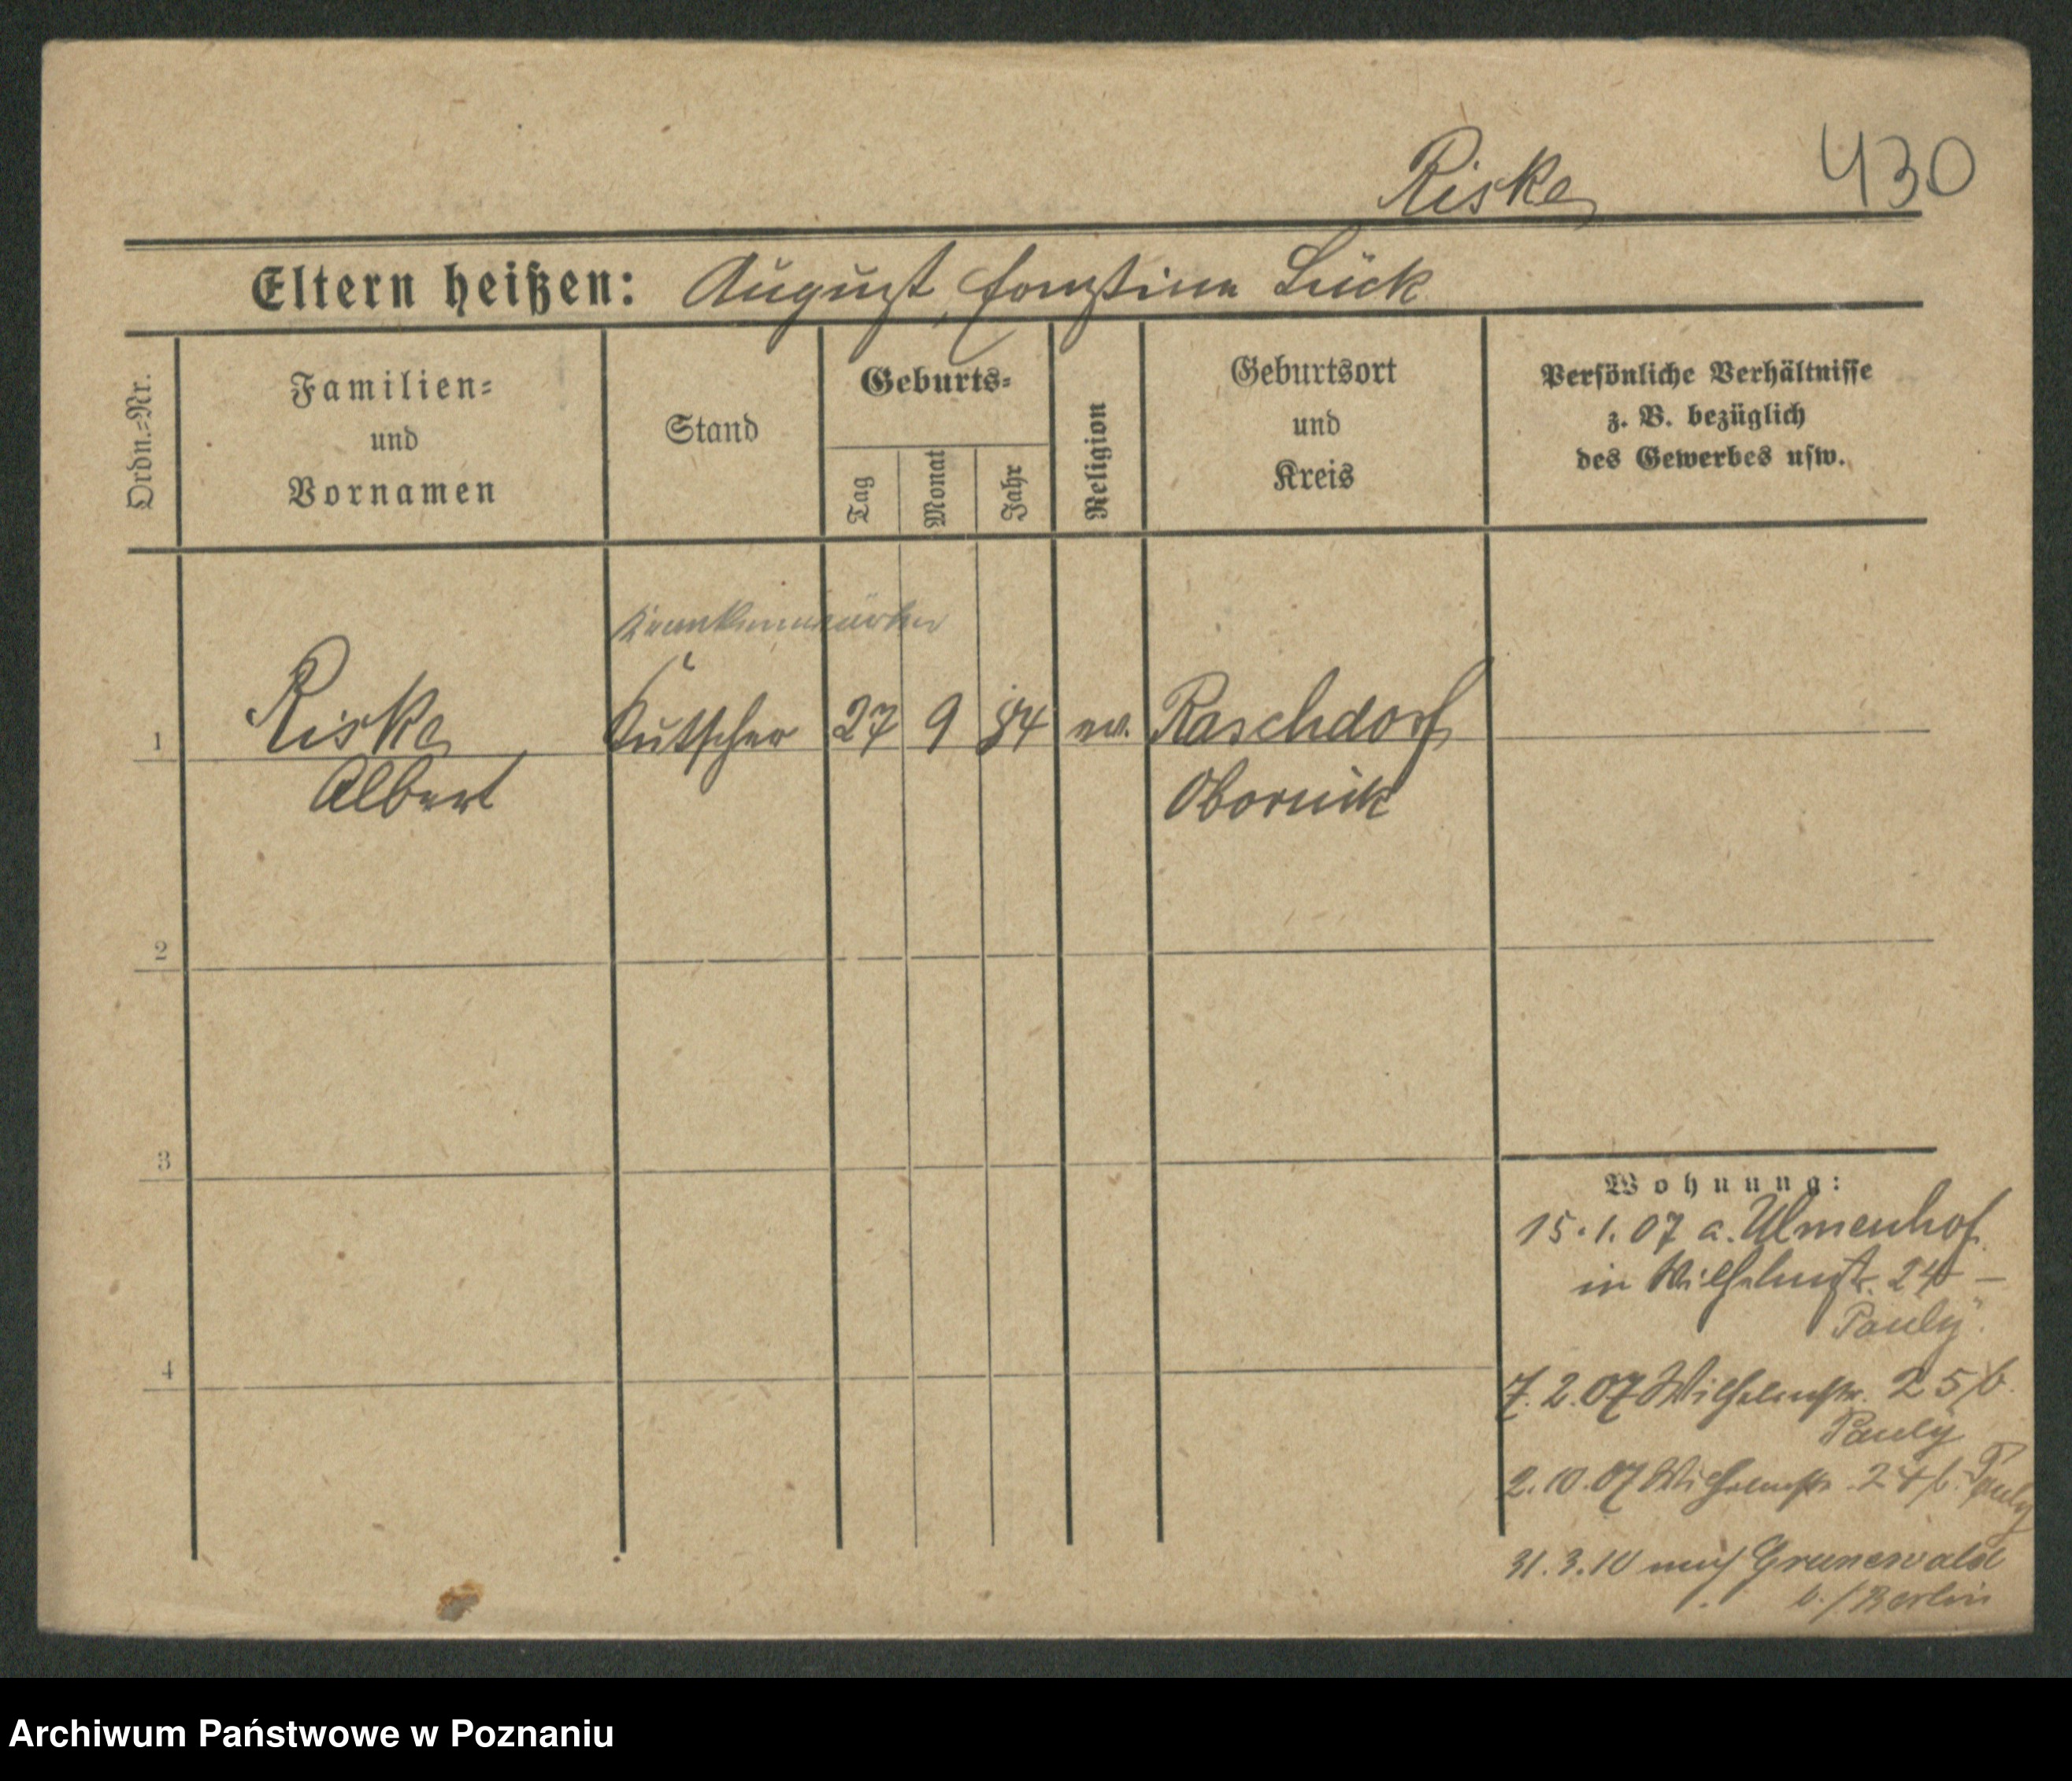 Riske 430
Eltern heißen: August, Ernstine Lück
Ordn.=Nr.
Familien=
und
Vornamen
Stand
Geburts=
Tag
Monat
Jahr
Religion
Geburtsort
und
Kreis
Persönliche Verhältnisse
z. B. bezüglich
des Gewerbes usw.
Krankenwärter
1 Riske Kutscher 27 9 84 ev. Raschdorf
Albert Obornik
2
3
4
Wohnung:
15.1.07 a. Ulmenhof
in Wilhelmstr. 24 –
Pauly
7.2.07 Wilhelmstr. 25/b.
Pauly
2.10.07 Wilhelmstr. 24/b. Pauly
31.3.10 nach Grunewald
b./Berlin
Archiwum Państwowe w Poznaniu